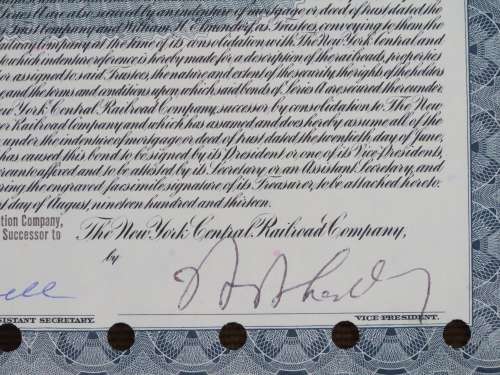 Series A are also secured by an indenture of mortgage or deed of trust dated the
Trust Company and William as Trustees, conveying to them the
Railway Company at the time of its consolidation with The New York Central and
which indenture reference is hereby made for a description of the railroads, properties
or assigned to said Trustees, the nature and extent of the security, the rights of the holders
and the terms and conditions upon which said bonds of Series A are secured thereunder.
New York Central Railroad Company, successor by consolidation to The New
River Railroad Company and which has assumed and does hereby assume all of the
under the indenture of mortgage or deed of trust dated the twentieth day of June,
has caused this bond to be signed by its President or one of its Vice Presidents,
hereunto affixed and to be attested by its Secretary or an Assistant Secretary, and
bearing the engraved facsimile signature of its Treasurer, to be attached hereto.
first day of August, nineteen hundred and thirteen.
tion Company,
Successor to
The New York Central Railroad Company,
by
ell
ASSISTANT SECRETARY.
VICE PRESIDENT.